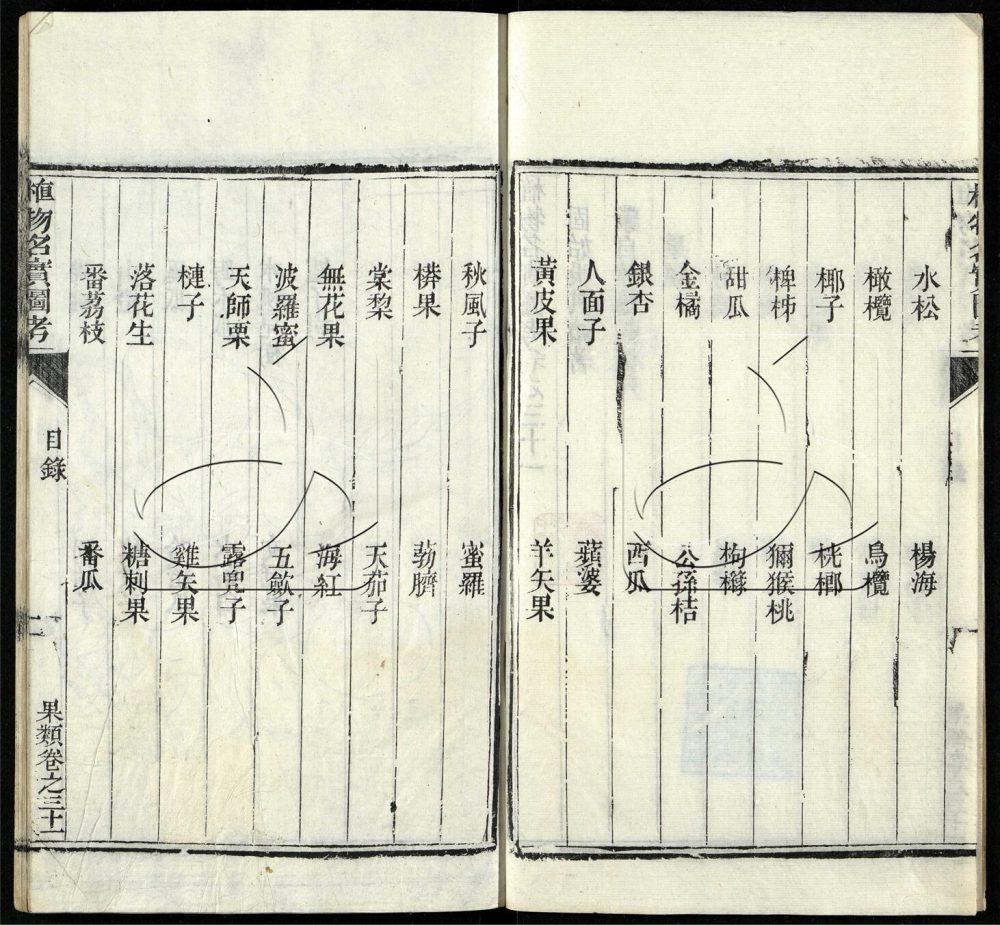 水松 楊海
橄欖 烏欖
椰子 桄榔
椑柹 獼猴桃
甜瓜 枸櫞
金橘 公孫桔
銀杏 西瓜
人面子 蘋婆
黃皮果 羊矢果
秋風子 蜜羅
果 葧臍
棠棃 天茄子
無花果 海紅
波羅蜜 五歛子
天師栗 露兜子
槤子 雞矢果
落花生 糖刺果
番荔枝 番瓜
植物名實圖考 目錄 二 果類卷之三十一